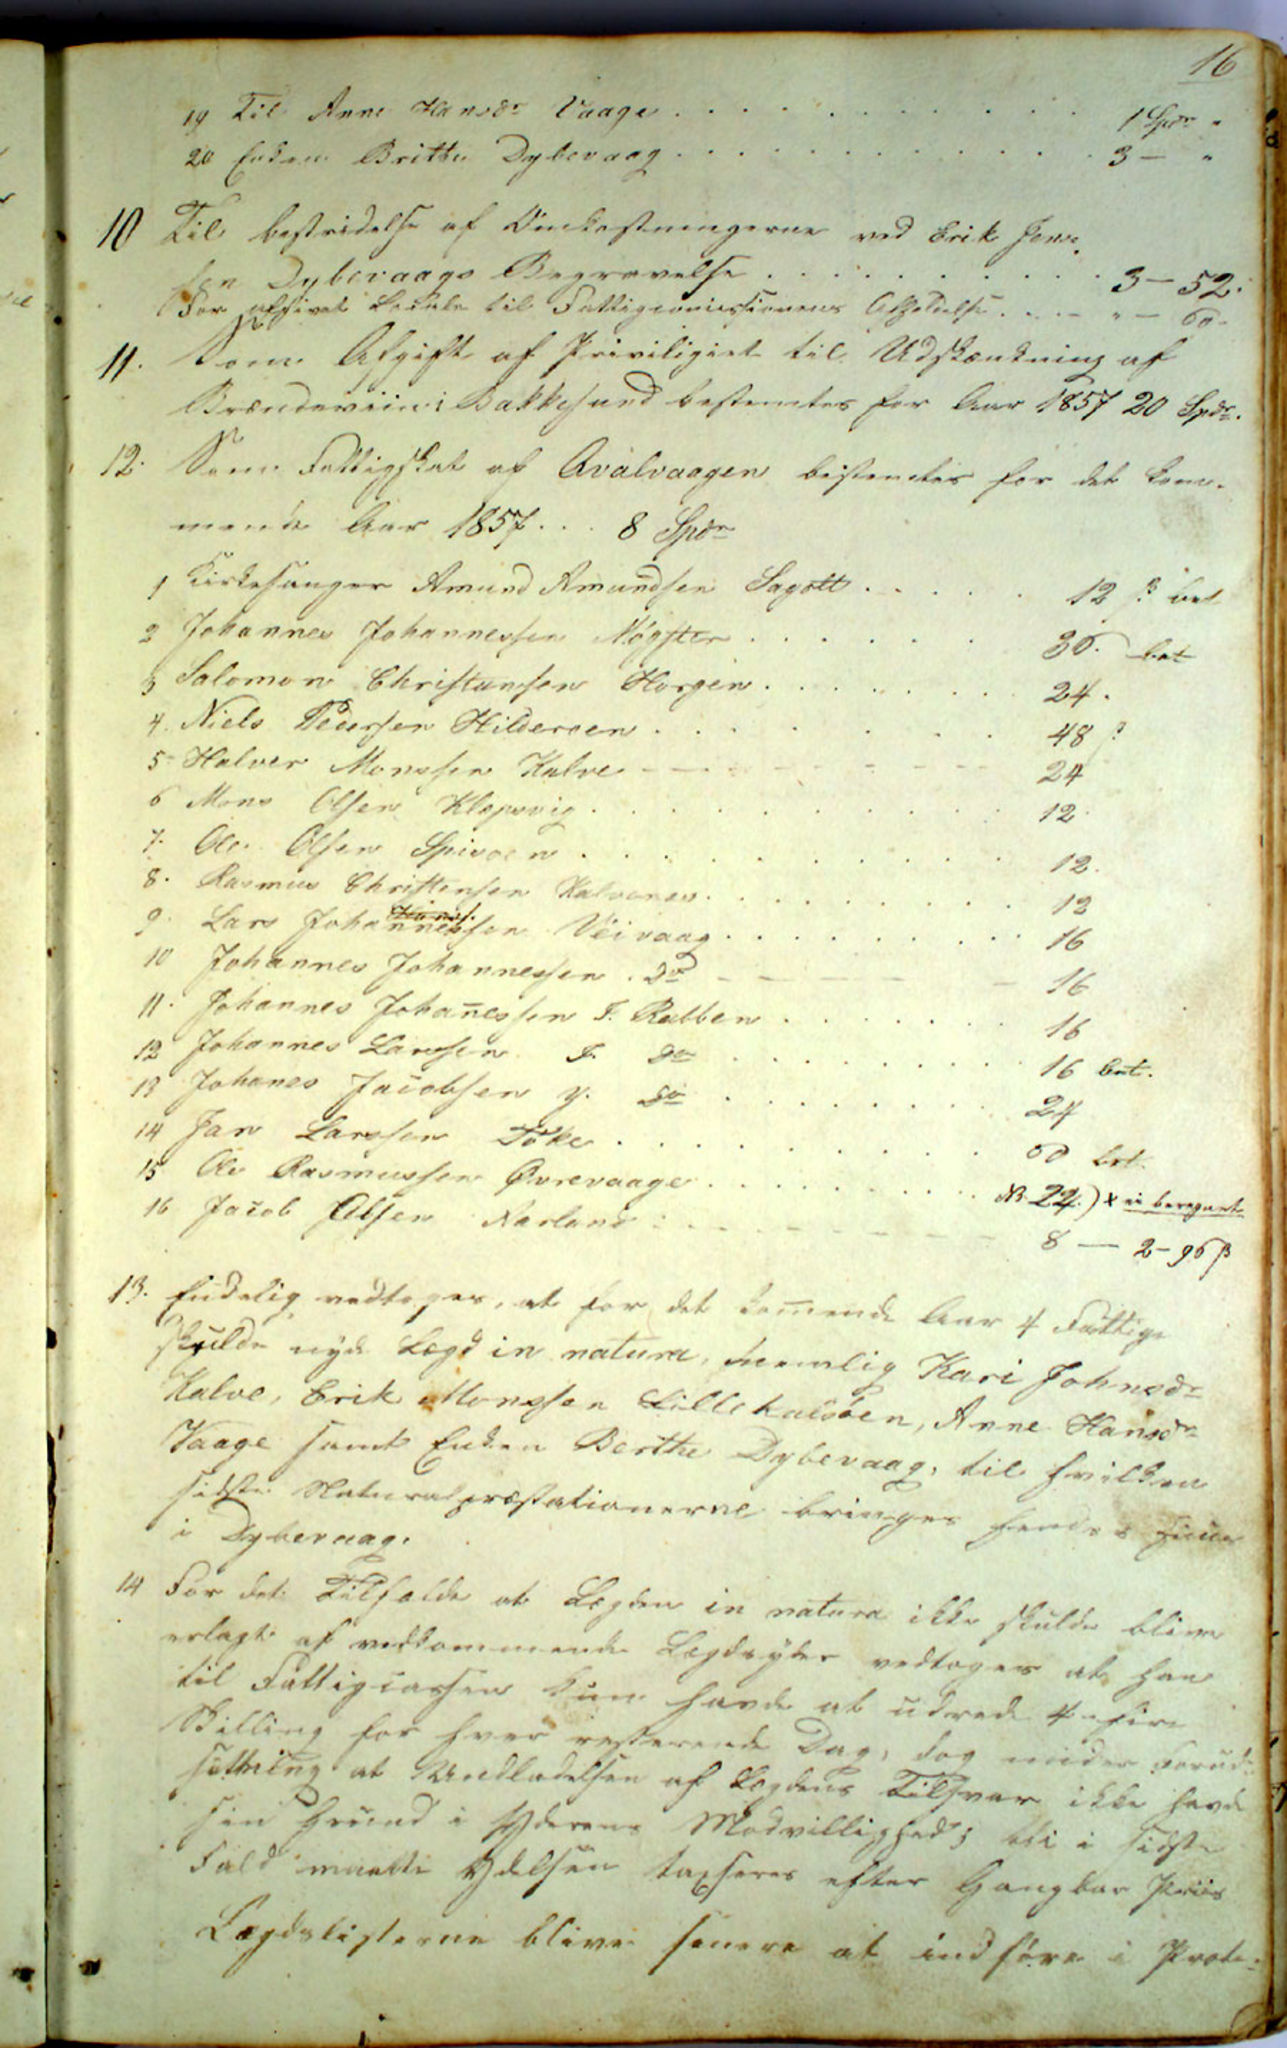 16
19 Til Anne Hansdr Vaage . . . . . . . . . . . 1 Spdr "
20 Enken Brithe Dybevaag . . . . . . . . . . . 3 — "
10 Til bestridelse af Omkostningerne ved Erik Jens-
sen Dybevaags Begravelse . . . . . . . . . 3 — 52.
For Locale til Fattigcommissionens Afholdelse . . . " — 60.
11. Som Afgift af Priviligiet til Udskænkning af
Brændeviin i Bakkesund bestemtes for Aar 1857 20 Spdr.
12. Som Fattigskat af Avalvaagen bestemtes for det kom-
mende Aar 1857 . . . 8 Spdr
1 Kirkesanger Amund Amundsen Lagott . . . . . 12 ß bet
2 Johannes Johannessen Møgster . . . . . . 36. bet
3 Salomon Christiansen Horgen . . . . . . . 24.
4. Niels Pedersen Hilderøen . . . . . . . 48 ß
5 Halver Monssen Kalve — — — — — 24
6 Mons Olsen Klepsvig . . . . . . . . 12.
7. Ole Olsen Spiroen . . . . . . . . . 12.
8. Rasmus Christensen Kalvenes . . . . . . . . 12
9. Lars Johannessen Veivaag . . . . . . . . 16
10 Johannes Johannessen do — — — — 16
11. Johannes Johan̄essen I. Rabben . . . . . . . 16
12 Johannes Larssen I. do . . . . . . . . 16 bet.
13 Johanes Jacobsen y. do . . . . . . . . 24
14 Jan Larssen Toke . . . . . . . . . 60 bet.
15 Ole Rasmussen Øvrevaage . . . . . . . . NB 24.) x ei beregnet
16 Jacob Olsen Narland . — — — — 8 — 2 - 96 ß
13. Endelig vedtoges, at for det kom̄ende Aar 4 Fattige
skulde nyde Lægd in natura, nemlig Kari Johnsdr
Kalve, Erik Monssen Lillekalsøen, Anne Hansdr
Vaage samt Enken Berthe Dybevaag, til hvilken
sidste Naturalpræstationerne bringes hendes
i Dybevaag.
14 For det Tilfælde at Lægden in natura ikke skulde blive
erlagt af vedkommende Lægdsyder vedtoges at han
til Fattigcassen kun havde at udrede 4 - fire
Skilling for hver resterende Dag, dog under Forud-
sætning at Undladelsen af Lægdens Tilsvar ikke havde
sin Grund i Yderens Modvillighed; thi i sidste
Fald maatte Ydelsen taxseres efter Gangbar Priis
Lægdslisterne blive senere at indføre i Proto-